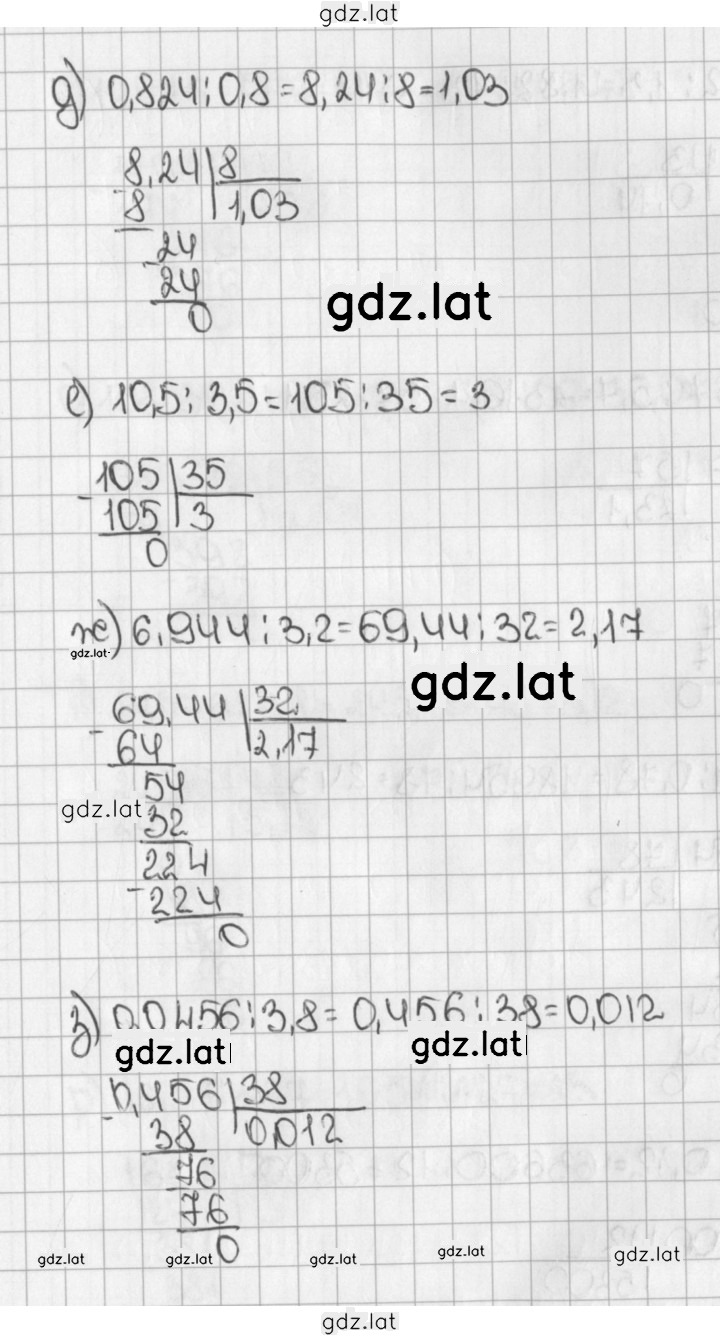 gdz.lat
д) 0,824:0,8=8,24:8=1,03
8,24 8
- 8 1,03
- 24
24
0
gdz.lat
е) 10,5:3,5=105:35=3
- 105 35
105 3
0
ж) 6,944:3,2=69,44:32=2,17
gdz.lat
gdz.lat
- 69,44 32
64 2,17
54
gdz.lat
32
224
- 224
0
з) 0,0456:3,8=0,456:38=0,012
gdz.lat gdz.lat
- 0,456 38
38 0,012
- 76
76
0
gdz.lat gdz.lat gdz.lat gdz.lat gdz.lat
gdz.lat